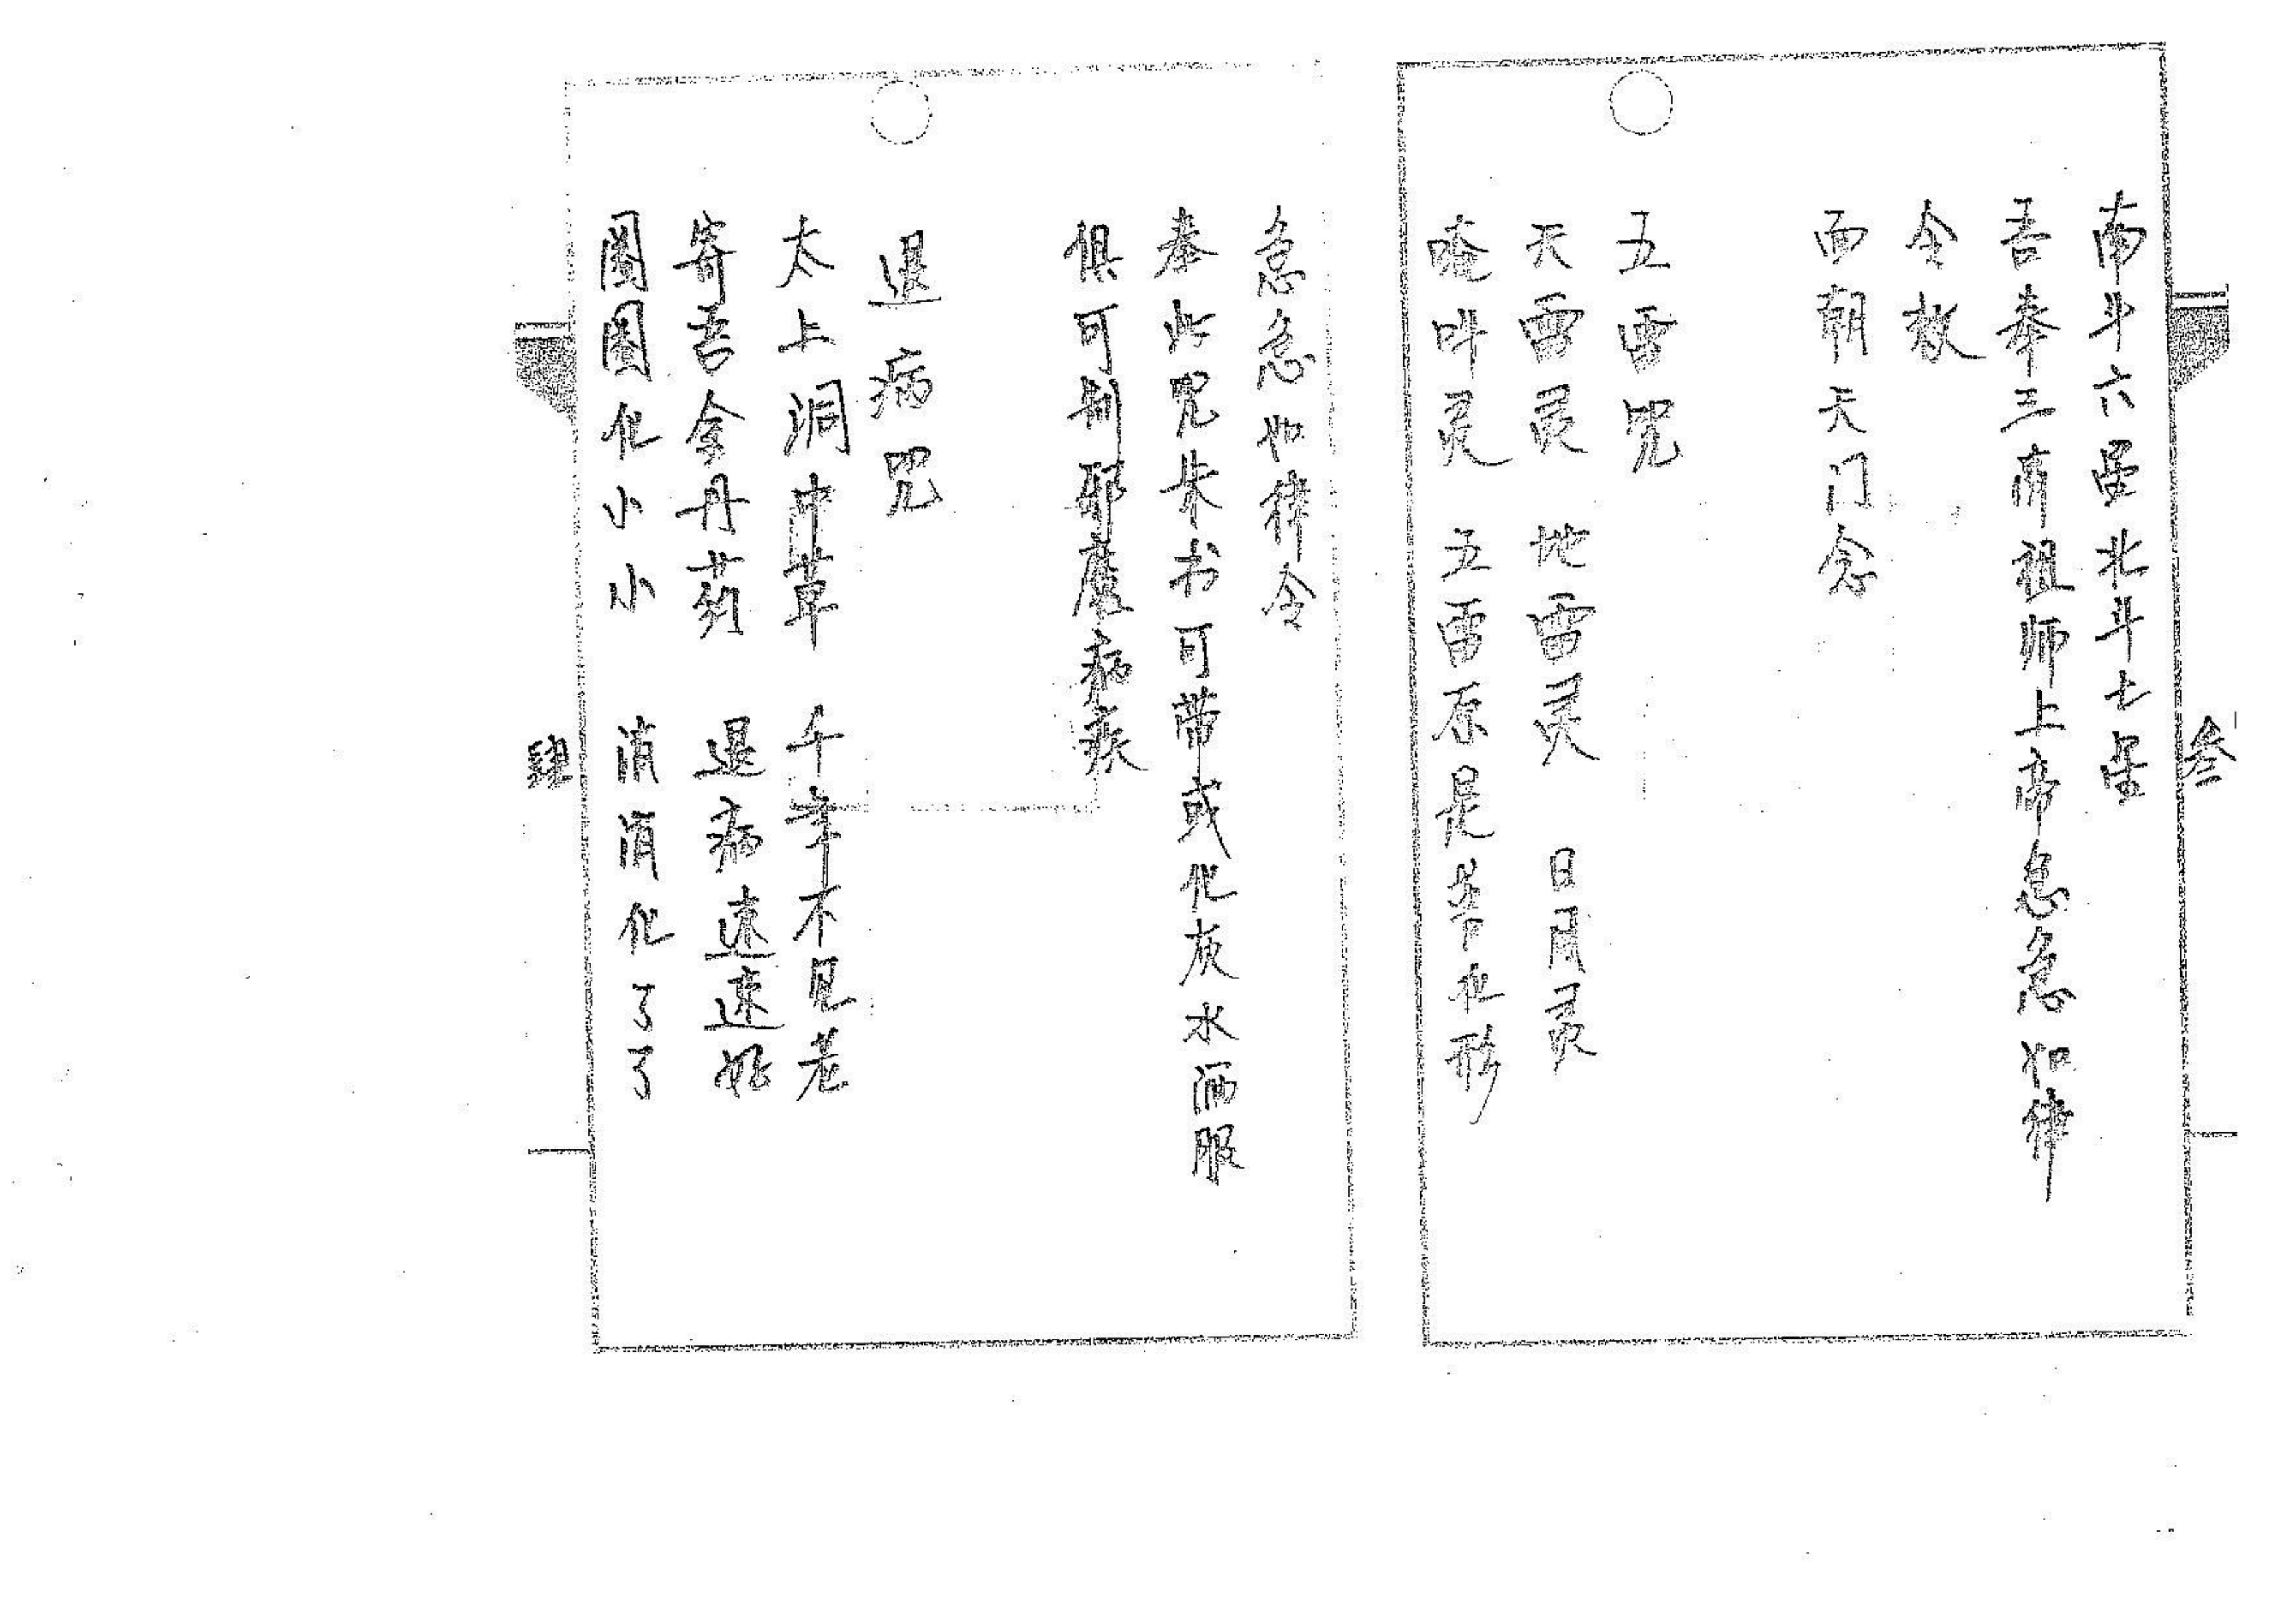 叁
南斗六星北斗七星
吾奉三清祖师上帝急急如律
令敕
面朝天门念
五雷咒
天雷灵 地雷灵 日月灵
唵吽灵 五雷原是苦化形
急急如律令
奉此咒朱书可带或化灰水洒服
俱可制邪魔病疾
退病咒
太上洞中草 千年不见老
寄吾金丹药 退病速速好
化小小 消消化了了
肆